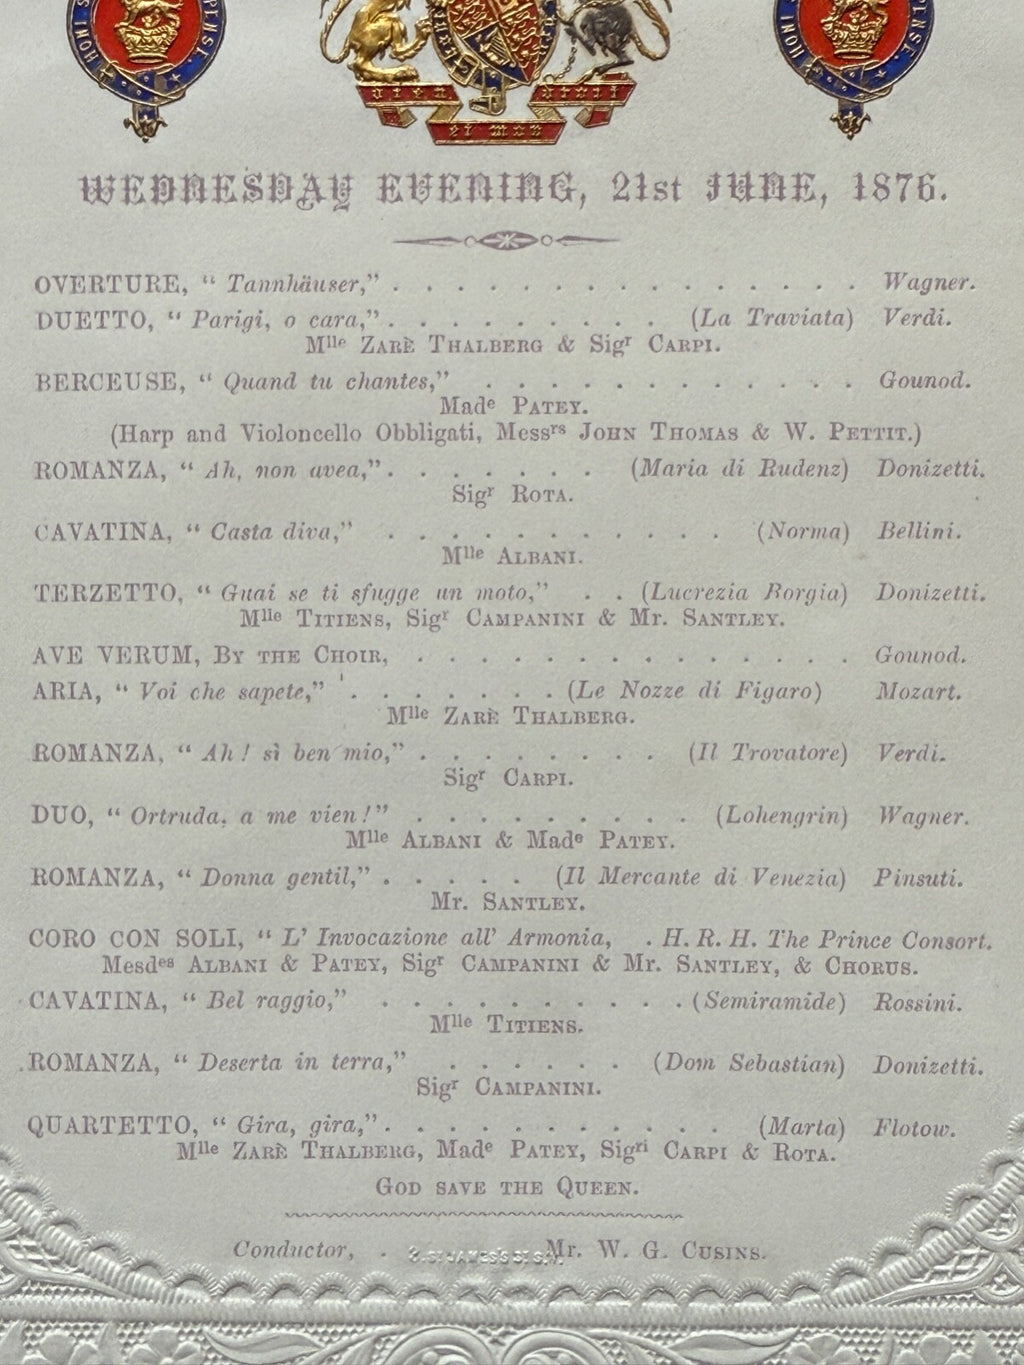 HONI S PENSE
HONI S PENSE
DIEU DROIT
ET MON
WEDNESDAY EVENING, 21st JUNE, 1876.
OVERTURE, “ Tannhäuser,” . . . . . . . . . . . . . . . Wagner.
DUETTO, “ Parigi, o cara,” . . . . . . . . . (La Traviata) Verdi.
Mlle ZARÈ THALBERG & Sigr CARPI.
BERCEUSE, “ Quand tu chantes,” . . . . . . . . . . . . Gounod.
Made PATEY.
(Harp and Violoncello Obbligati, Messrs JOHN THOMAS & W. PETTIT.)
ROMANZA, “ Ah, non avea,” . . . . . . . (Maria di Rudenz) Donizetti.
Sigr ROTA.
CAVATINA, “ Casta diva,” . . . . . . . . . . . (Norma) Bellini.
Mlle ALBANI.
TERZETTO, “ Guai se ti sfugge un moto,” . . (Lucrezia Borgia) Donizetti.
Mlle TITIENS, Sigr CAMPANINI & Mr. SANTLEY.
AVE VERUM, BY THE CHOIR, . . . . . . . . . . . . . . Gounod.
ARIA, “ Voi che sapete,” . . . . . . . (Le Nozze di Figaro) Mozart.
Mlle ZARÈ THALBERG.
ROMANZA, “ Ah ! sì ben mio,” . . . . . . . . (Il Trovatore) Verdi.
Sigr CARPI.
DUO, “ Ortruda, a me vien !” . . . . . . . . . (Lohengrin) Wagner.
Mlle ALBANI & Made PATEY.
ROMANZA, “ Donna gentil,” . . . . . (Il Mercante di Venezia) Pinsuti.
Mr. SANTLEY.
CORO CON SOLI, “ L’ Invocazione all’ Armonia, . H. R. H. The Prince Consort.
Mesdes ALBANI & PATEY, Sigr CAMPANINI & Mr. SANTLEY, & CHORUS.
CAVATINA, “ Bel raggio,” . . . . . . . . . . (Semiramide) Rossini.
Mlle TITIENS.
ROMANZA, “ Deserta in terra,” . . . . . . (Dom Sebastian) Donizetti.
Sigr CAMPANINI.
QUARTETTO, “ Gira, gira,” . . . . . . . . . . . (Marta) Flotow.
Mlle ZARÈ THALBERG, Made PATEY, Sigri CARPI & ROTA.
GOD SAVE THE QUEEN.
Conductor, . Mr. W. G. CUSINS.
ST JAMES'S ST. S.W.